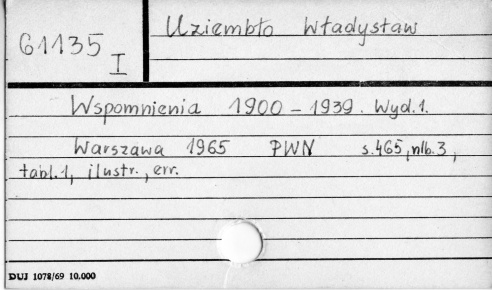 61135 I
Uziembło Władysław
Wspomnienia 1900 – 1939. Wyd. 1.
Warszawa 1965 PWN s. 465, nlb. 3,
tabl. 1, ilustr., err.
DUJ 1078/69 10.000